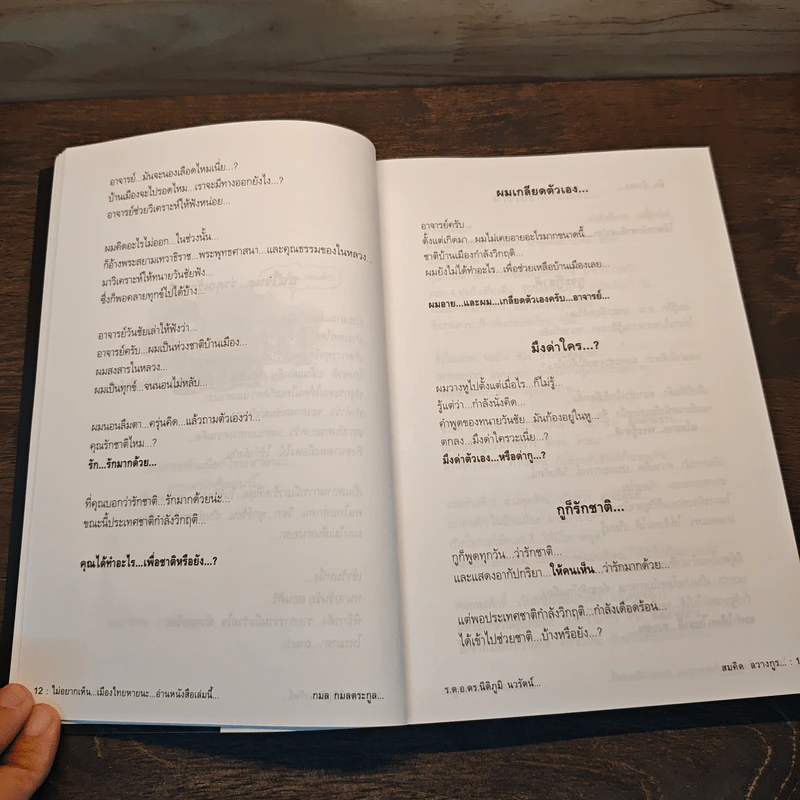 อาจารย์...มันจะนองเลือดไหมเนี่ย...?
บ้านเมืองจะไปรอดไหม...เราจะมีทางออกยังไง...?
อาจารย์ช่วยวิเคราะห์ให้ฟังหน่อย...
ผมคิดอะไรไม่ออก...ในช่วงนั้น...
ก็อ้างพระสยามเทวาธิราช...พระพุทธศาสนา...และคุณธรรมของในหลวง...
มาวิเคราะห์ให้ทนายวันชัยฟัง...
ซึ่งก็พอคลายทุกข์ไปได้บ้าง...
อาจารย์วันชัยเล่าให้ฟังว่า...
อาจารย์ครับ...ผมเป็นห่วงชาติบ้านเมือง...
ผมสงสารในหลวง...
ผมเป็นทุกข์...จนนอนไม่หลับ...
ผมนอนลืมตา...ครุ่นคิด...แล้วถามตัวเองว่า...
คุณรักชาติไหม...?
รัก...รักมากด้วย...
ที่คุณบอกว่ารักชาติ...รักมากด้วยน่ะ...
ขณะนี้ประเทศชาติกำลังวิกฤติ...
คุณได้ทำอะไร...เพื่อชาติหรือยัง...?
12 : ไม่อยากเห็น...เมืองไทยหายนะ...อ่านหนังสือเล่มนี้...
กมล กมลตระกูล...
ผมเกลียดตัวเอง...
อาจารย์ครับ...
ตั้งแต่เกิดมา...ผมไม่เคยอายอะไรมากขนาดนี้...
ชาติบ้านเมืองกำลังวิกฤติ...
ผมยังไม่ได้ทำอะไร...เพื่อช่วยเหลือบ้านเมืองเลย...
ผมอาย...และผม...เกลียดตัวเองครับ...อาจารย์...
มึงด่าใคร...?
ผมวางหูไปตั้งแต่เมื่อไร...ก็ไม่รู้...
รู้แต่ว่า...กำลังนั่งคิด...
คำพูดของทนายวันชัย...มันก้องอยู่ในหู...
ตกลง...มึงด่าใครวะเนี่ย...?
มึงด่าตัวเอง...หรือด่ากู...?
กูก็รักชาติ...
กูก็พูดทุกวัน...ว่ารักชาติ...
และแสดงอากัปกริยา...ให้คนเห็น...ว่ารักมากด้วย...
แต่พอประเทศชาติกำลังวิกฤติ...กำลังเดือดร้อน...
ได้เข้าไปช่วยชาติ...บ้างหรือยัง...?
ร.ต.อ.ดร.นิติภูมิ นวรัตน์...
สมคิด ลวางกูร... : 1